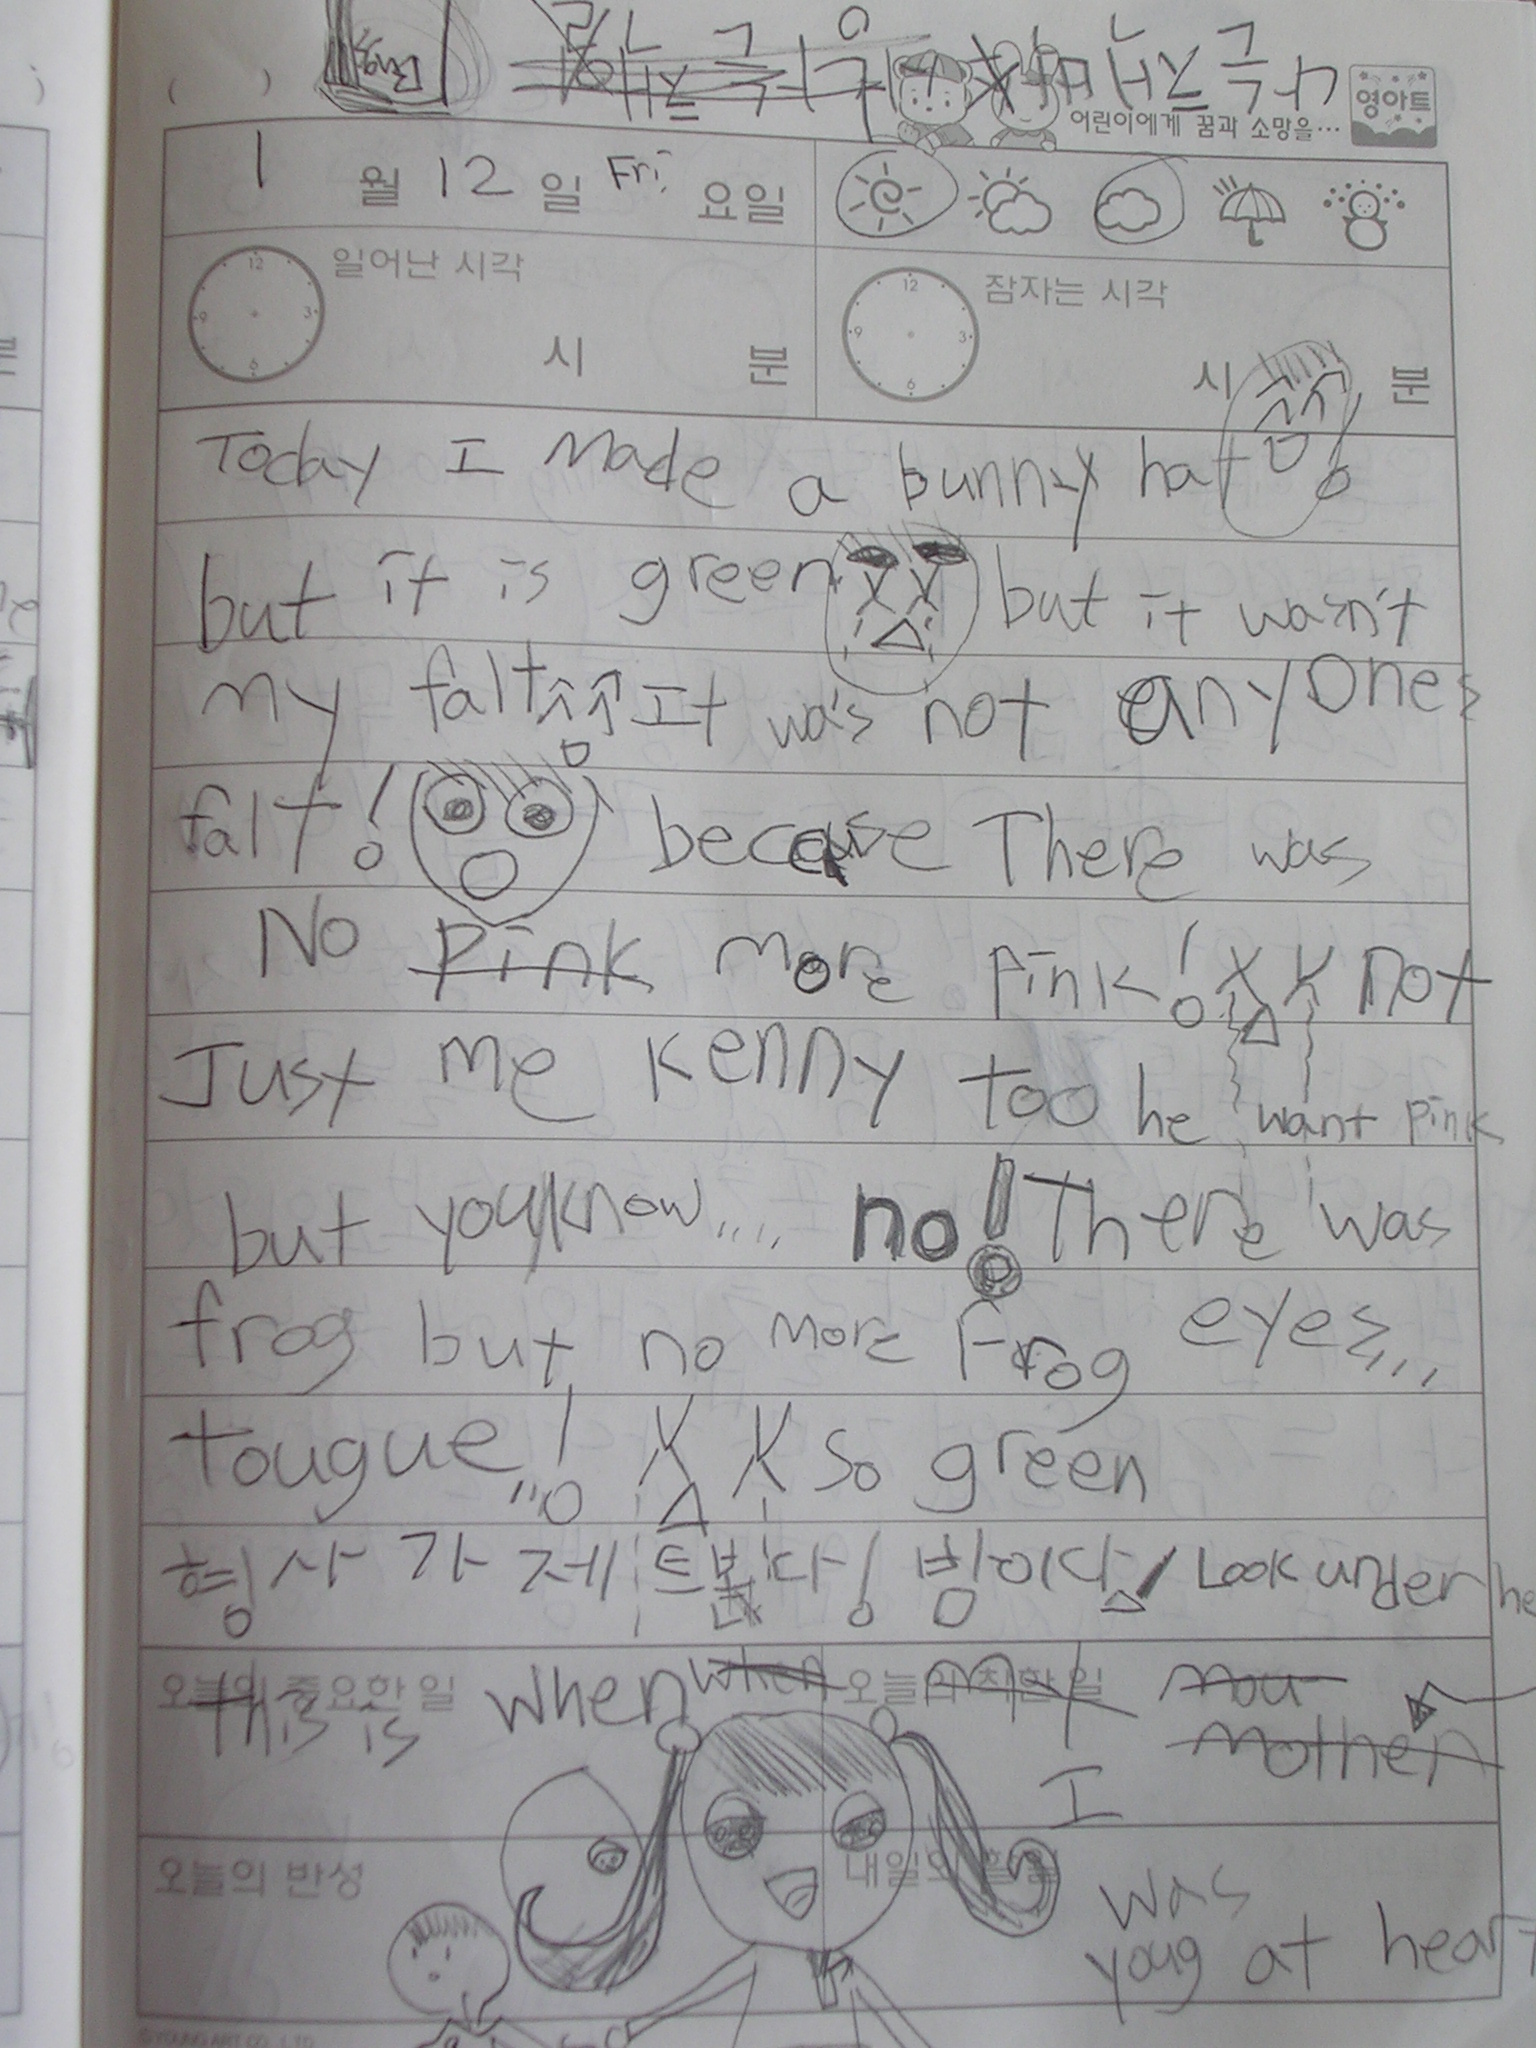 Eng
어린이에게 꿈과 소망을...
영아트
1 월 12 일 Fri 요일
일어난 시각
12
3
6
9
시 분
잠자는 시각
12
3
6
9
시 분
Today I Made a bunny hat!
but it is green but it wasn't
my falt It was not anyones
falt! because There was
No pink more pink! not
Just me kenny too he want pink
but you know.... no! There was
frog but no more frog eyes...
tougue! so green
형사 가제트 다! 빙이다! Look under he
오늘의 중요한 일
this is when when
오늘의 착한 일
my mou
mother
I
오늘의 반성
내일의 할 일
was
youg at heart